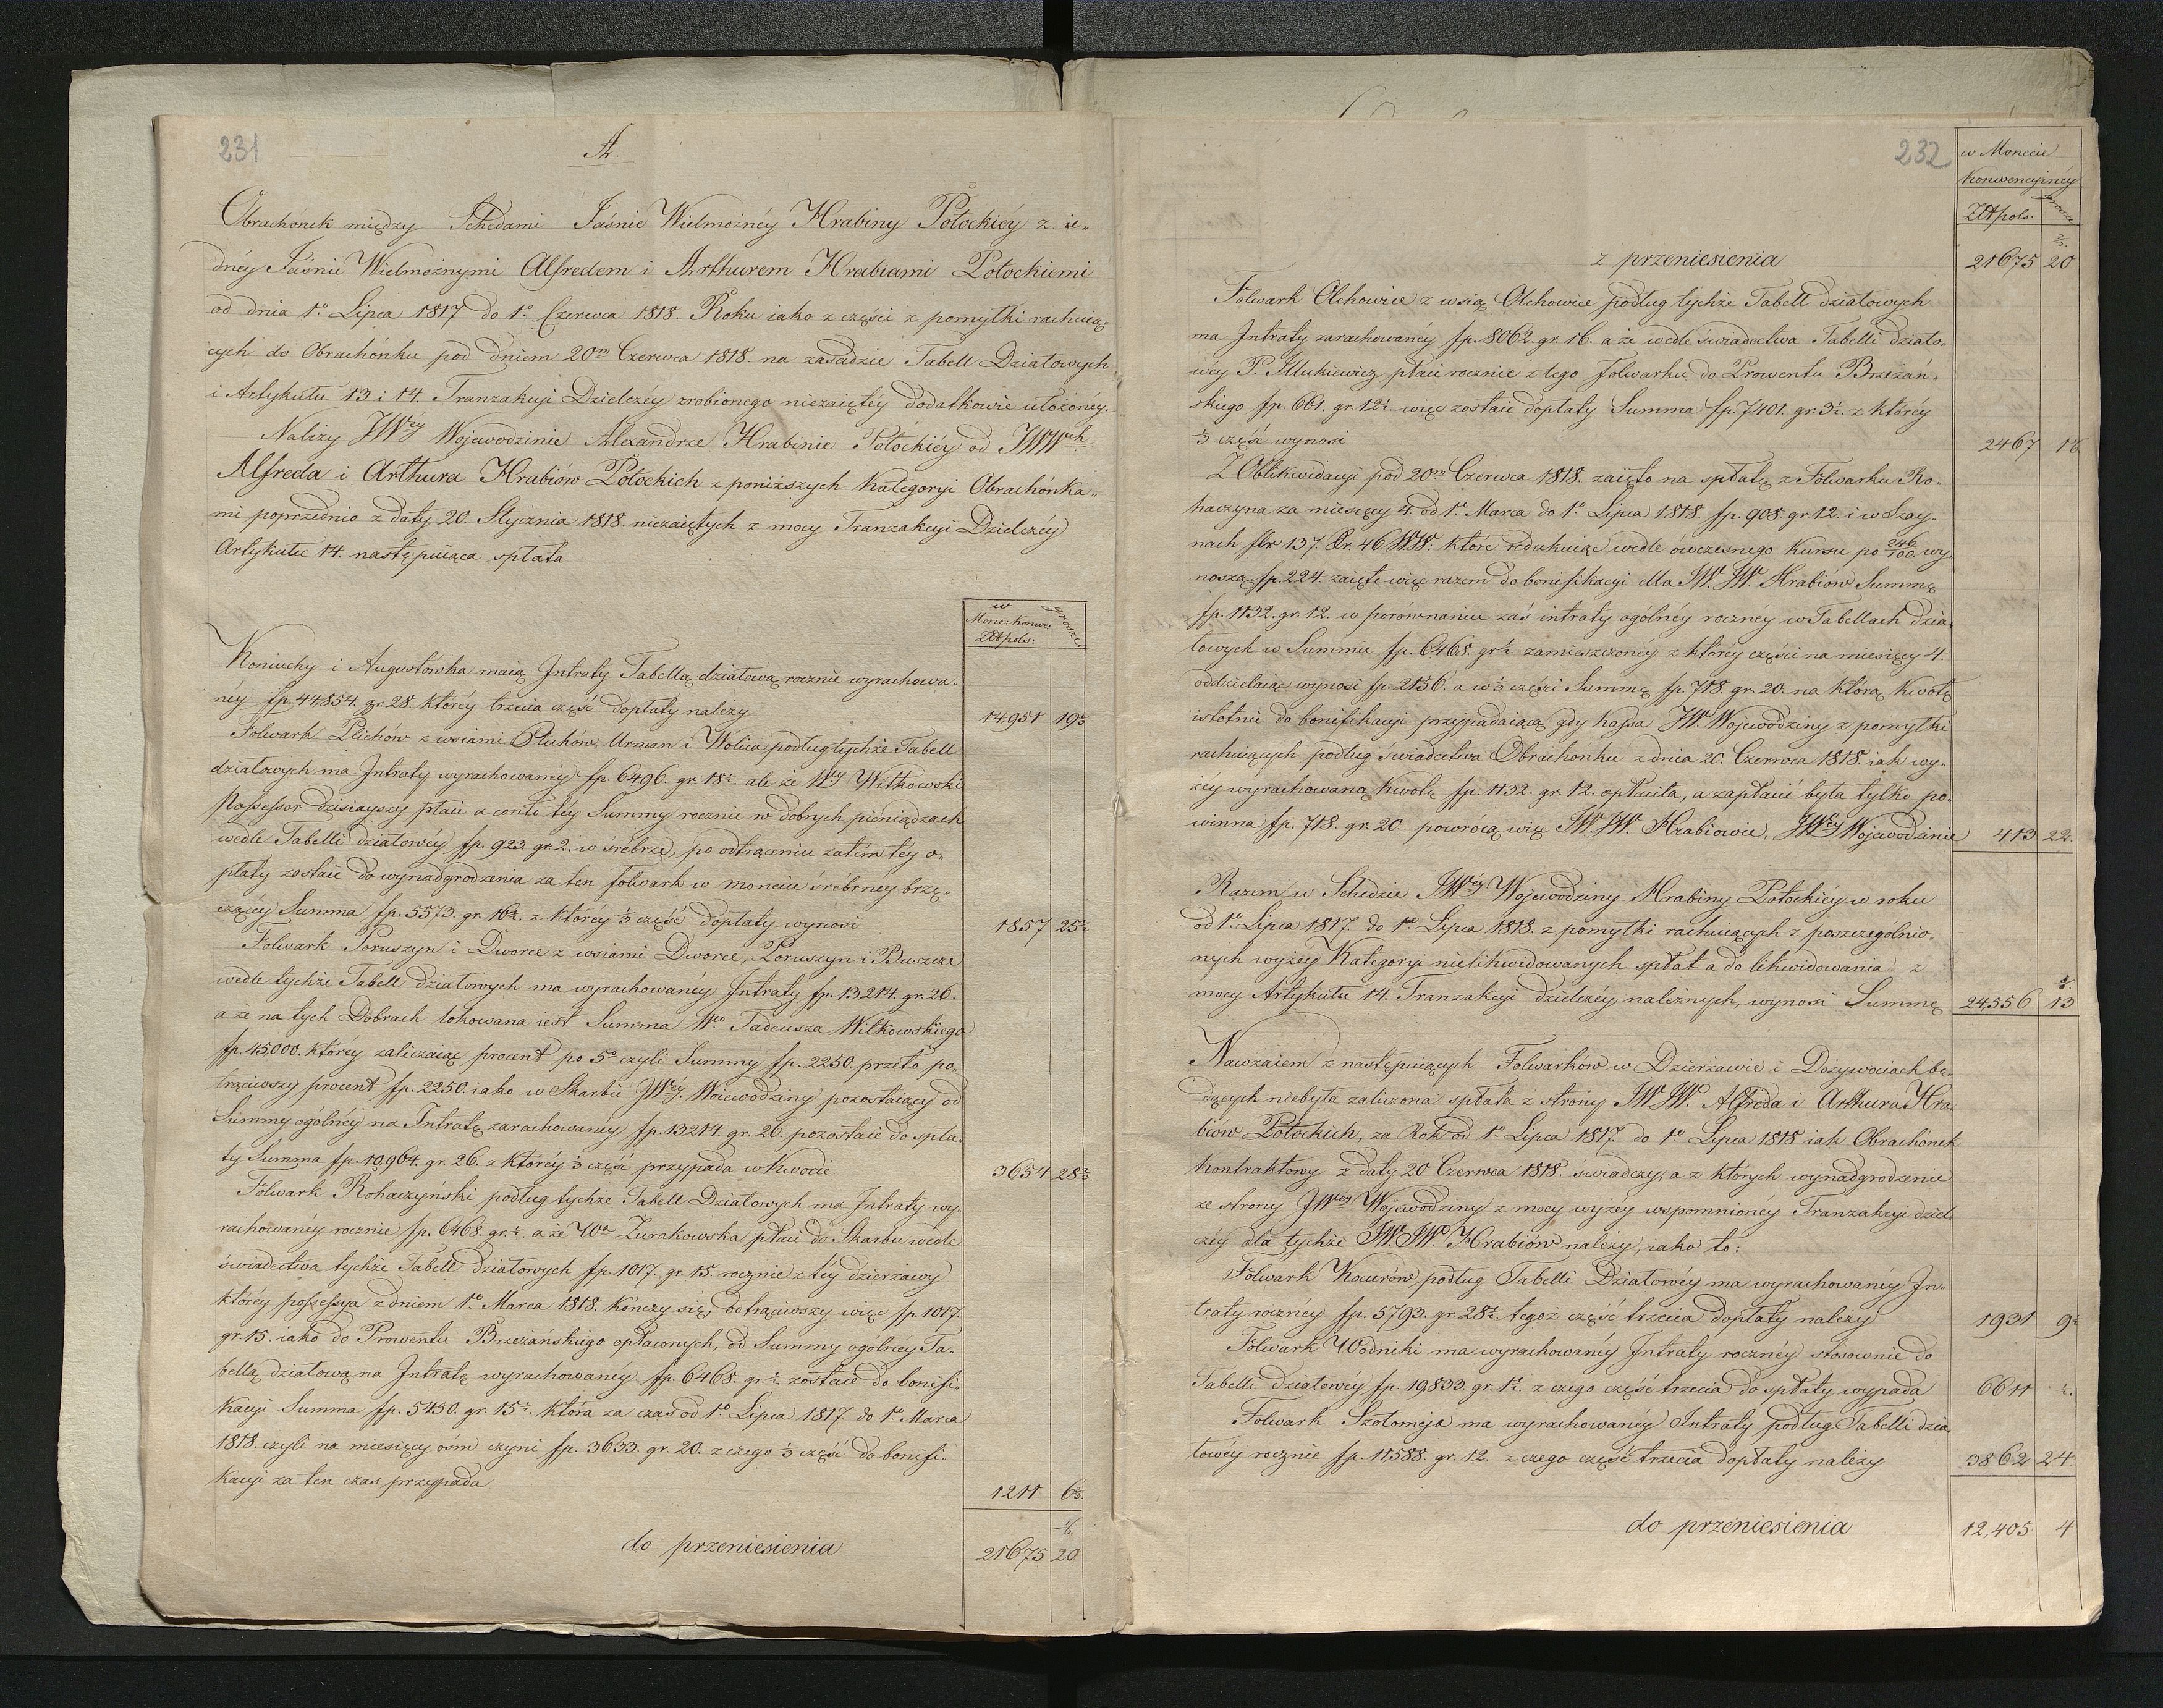 231
A.
Obrachonek między Schedami Jaśnie Wielmożnéy Hrabiny Potockiéy z ie-
dnéy Jaśnie Wielmożnymi Alfredem i Arthurem Hrabiami Potockiemi
od dnia 1o Lipca 1817 do 1o Czerwca 1818. Roku iako z części z pomyłki rachuią-
cych do Obrachónku pod dniem 20m Czerwca 1818. na zasadzie Tabell Działowych
i Artykułu 13 i 14. Tranzakcyi Dzielczéy zrobionego niezaiętéy dodatkowie ułożonéy.
Należy JWéy Wojewodzinie Alexandrze Hrabinie Potockiéy od JWWch
Alfreda i Arthura Hrabiów Potockich z poniższych Kategoryi Obrachónka-
mi poprzednio z daty 20. Stycznia 1818. niezaiętych z mocy Tranzakcyi Dzielczéy
Artykułu 14. następuiąca spłata
w Mone: konwe: Złt pols: grosze
Koniuchy i Augustówka maią Jntraty Tabellą działową rocznie wyrachowa-
néy fp. 44,854. gr. 28. któréy trzecia część dopłaty należy 14951 19⅓
Folwark Plichów z wsiami Plichów, Urman i Wolica podług tychże Tabell
działowych ma Jntraty wyrachowanéy fp. 6496. gr. 18½. ale że Wny Witkowski
Possessor dzisiayszy płaci a conto téy Summy rocznie w dobrych pieniądzach
wedle Tabelli działowéy fp. 923. gr. 2. w śrébrze, po odtrąceniu zatém téy o-
płaty zostaie do wynadgrodzenia za ten folwark w monecie śrébrney brzę-
czącéy Summa fp. 5573. gr. 16½. z któréy ⅓ część dopłaty wynosi 1857 25½
Folwark Poruszyn i Dworce z wsiami Dworce, Poruszyn i Buszcze
wedle tychże Tabell działowych ma wyrachowanéy Jntraty fp. 13214. gr. 26.
a że na tych Dobrach lokowana iest Summa Wgo Tadeusza Witkowskiego
fp. 45,000. któréy zaliczaiąc procent po 5o czyli Summy fp. 2250. przeto po-
trąciwszy procent fp. 2250. iako w Skarbie JWéy. Woiewodziny pozostaiący od
Summy ogólnéy na Intratę zarachowanéy fp. 13214. gr. 26. pozostaie do spła-
ty Summa fp. 10,964. gr. 26. z któréy ⅓ część przypada w Kwocie 3654 28⅔
Folwark Rohaczyński podług tychże Tabell Działowych ma Jntraty wy-
rachowanéy rocznie fp. 6468. gr. ½. a że Wa Żurakowska płaci do Skarbu wedle
świadectwa tychże Tabell działowych fp. 1017. gr. 15. rocznie z téy dzierżawy
któréy possessya z dniem 1o Marca 1818. kończy się, odtrąciwszy więc fp. 1017.
gr. 15. iako do Prowentu Brzeżańskiego opłaconych, od Summy ogólnéy Ta-
bellą działową na Jntratę wyrachowanéy fp. 6468. gr. ½. zostaie do bonifi-
kacyi Summa fp. 5450. gr. 15½. która za czas od 1o Lipca 1817. do 1o Marca
1818. czyli na miesięcy óśm czyni fp. 3633. gr. 20. z czego ⅓ część do bonifi-
kacyi za ten czas przypada 1211 6⅔
do przeniesienia 21675 20 ⅙
232
w Monecie Konwencyinéy
Złt pols. grosze
z przeniesienia 21675 20
Folwark Olchowice z wsią Olchowice podług tychże Tabell działowych
ma Jntraty zarachowanéy fp. 8062. gr. 16. a że wedle świadectwa Tabelli działo-
wéy P. Illukiewicz płaci rocznie z tego folwarku do Prowentu Brzeżań-
skiego fp. 661. gr. 12½. więc zostaie dopłaty Summa fp. 7401. gr. 3½. z któréy
⅓ część wynosi 2467 1
Z Oblikwidacyi pod 20m Czerwca 1818. zaięto na spłatę z Folwarku Ro-
haczyna za miesięcy 4. od 1o Marca do 1o Lipca 1818. fp. 908. gr. 12. i w Szay-
nach flr 137. Xr. 46 WW. które redukuiąc wedle ówczesnego Kursu po 246/100 wy-
noszą fp. 224. zaięte więc razem do bonifikacyi dla JW. JW. Hrabiów Summę
fp. 1132. gr. 12. w porównaniu zaś intraty ogólnéy rocznéy w Tabellach dzia-
łowych w Summie fp. 6468. gr. ½. zamieszczonéy z któréy części na miesięcy 4.
oddzielaiąc wynosi fp. 2156. a w ⅓ części Summę fp. 718. gr. 20. na którą Kwotę
istotnie do bonifikacyi przypadaiącą gdy Kassa JW. Wojewodziny z pomyłki
rachuiących podług świadectwa Obrachonku z dnia 20. Czerwca 1818. iak wy-
żéy wyrachowaną Kwotę fp. 1132. gr. 12. opłaciła, a zapłacić była tylko po-
winna fp. 718. gr. 20. powrócą więc JW. JW. Hrabiowie, JWéy Wojewodzinie 413 22.
Razem w Schedzie JWéy Wojewodziny Hrabiny Potockiéy w roku
od 1o Lipca 1817. do 1o Lipca 1818. z pomyłki rachuiących z poszczególnio-
nych wyżéy Kategoryi nielikwidowanych spłat a do likwidowania z
mocy Artykułu 14. Tranzakcyi dzielczéy należnych, wynosi Summę 24,556 13
Nawzaiem z następuiących Folwarków w Dzierżawie i Dożywociach bę-
dących niebyła zaliczona spłata z strony JW JW. Alfreda i Arthura Hra-
biów Potockich, za Rok od 1o Lipca 1817 do 1o Lipca 1818 iak Obrachónek
kontraktowy z daty 20 Czerwca 1818. świadczy; a z których wynadgrodzenie
ze strony JWéy Wojewodziny z mocy wyżéy wspomnionéy Tranzakcyi dziel-
czéy dla tychże JW. JW. Hrabiów należy, iako to:
Folwark Kocurów podług Tabelli Działowéy ma wyrachowanéy Jn-
traty rocznéy fp. 5793. gr. 28½. tegoż część trzecia dopłaty należy 1931 9½
Folwark Wodniki ma wyrachowanéy Jntraty rocznéy stosownie do
Tabelli działowéy fp. 19,833. gr. 1½. z czego część trzecia do spłaty wypada 6611 ½.
Folwark Szołomyja ma wyrachowanéy Intraty podług Tabelli dzia-
łowéy rocznie fp. 11,588. gr. 12. z czego część trzecia dopłaty należy 3862 24
do przeniesienia 12,405 4